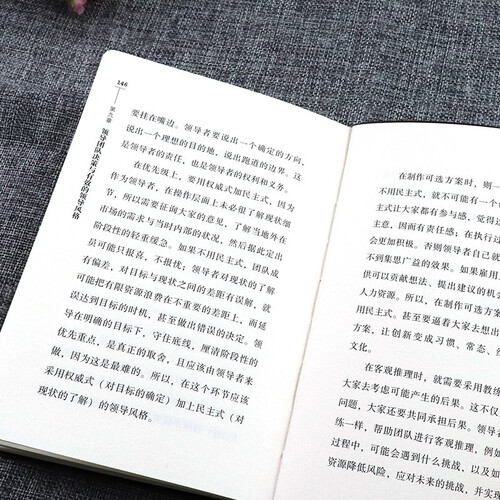 146
第九章
领导团队决策与有效的领导风格
要挂在嘴边。领导者要说出一个确定的方向，
说出一个理想的目的地，说出跑道的边界。这
是领导者的责任，也是领导者的权利和义务。
在优先级上，要用权威式加民主式，因为
作为领导者，在操作层面上未必很了解现状细
节，所以需要征询大家的意见，了解当地外在
市场的需求与当时内部的状况，然后据此定出
阶段性的轻重缓急。如果不用民主式，团队成
员可能只报喜，不报忧；领导者对现状的了解
有偏差，对目标与现状之间的差距有误解，就
可能把有限资源浪费在不重要的差距上，而延
误达到目标的时机，甚至做出错误的决定。领
导在明确的目标下，守住底线，厘清阶段性的
优先重点，是真正的取舍，且应该由领导者来
做，因为这是最难的。所以，在这个环节应该
采用权威式（对目标的确定）加上民主式（对
现状的了解）的领导风格。
在制作可选方案时，则一
不用民主式，就不可能有一个
主式让大家都有参与感，觉得
意，因而有责任感；在执行过
会更加积极。否则领导者自己就
不到集思广益的效果。如果雇用
供可以贡献想法、提出建议的机会
人力资源。所以，在制作可选方案
用民主式。甚至要逼着大家去想出
方案，让创新变成习惯、常态、
文化。
在客观推理时，就需要采用教练
大家去考虑可能产生的后果。这不仅
问题，大家还要共同承担后果。领导者
练一样，帮助团队进行客观推理，例如
过程中，可能会遇到什么挑战，以及如
资源降低风险，应对未来的挑战，并实现